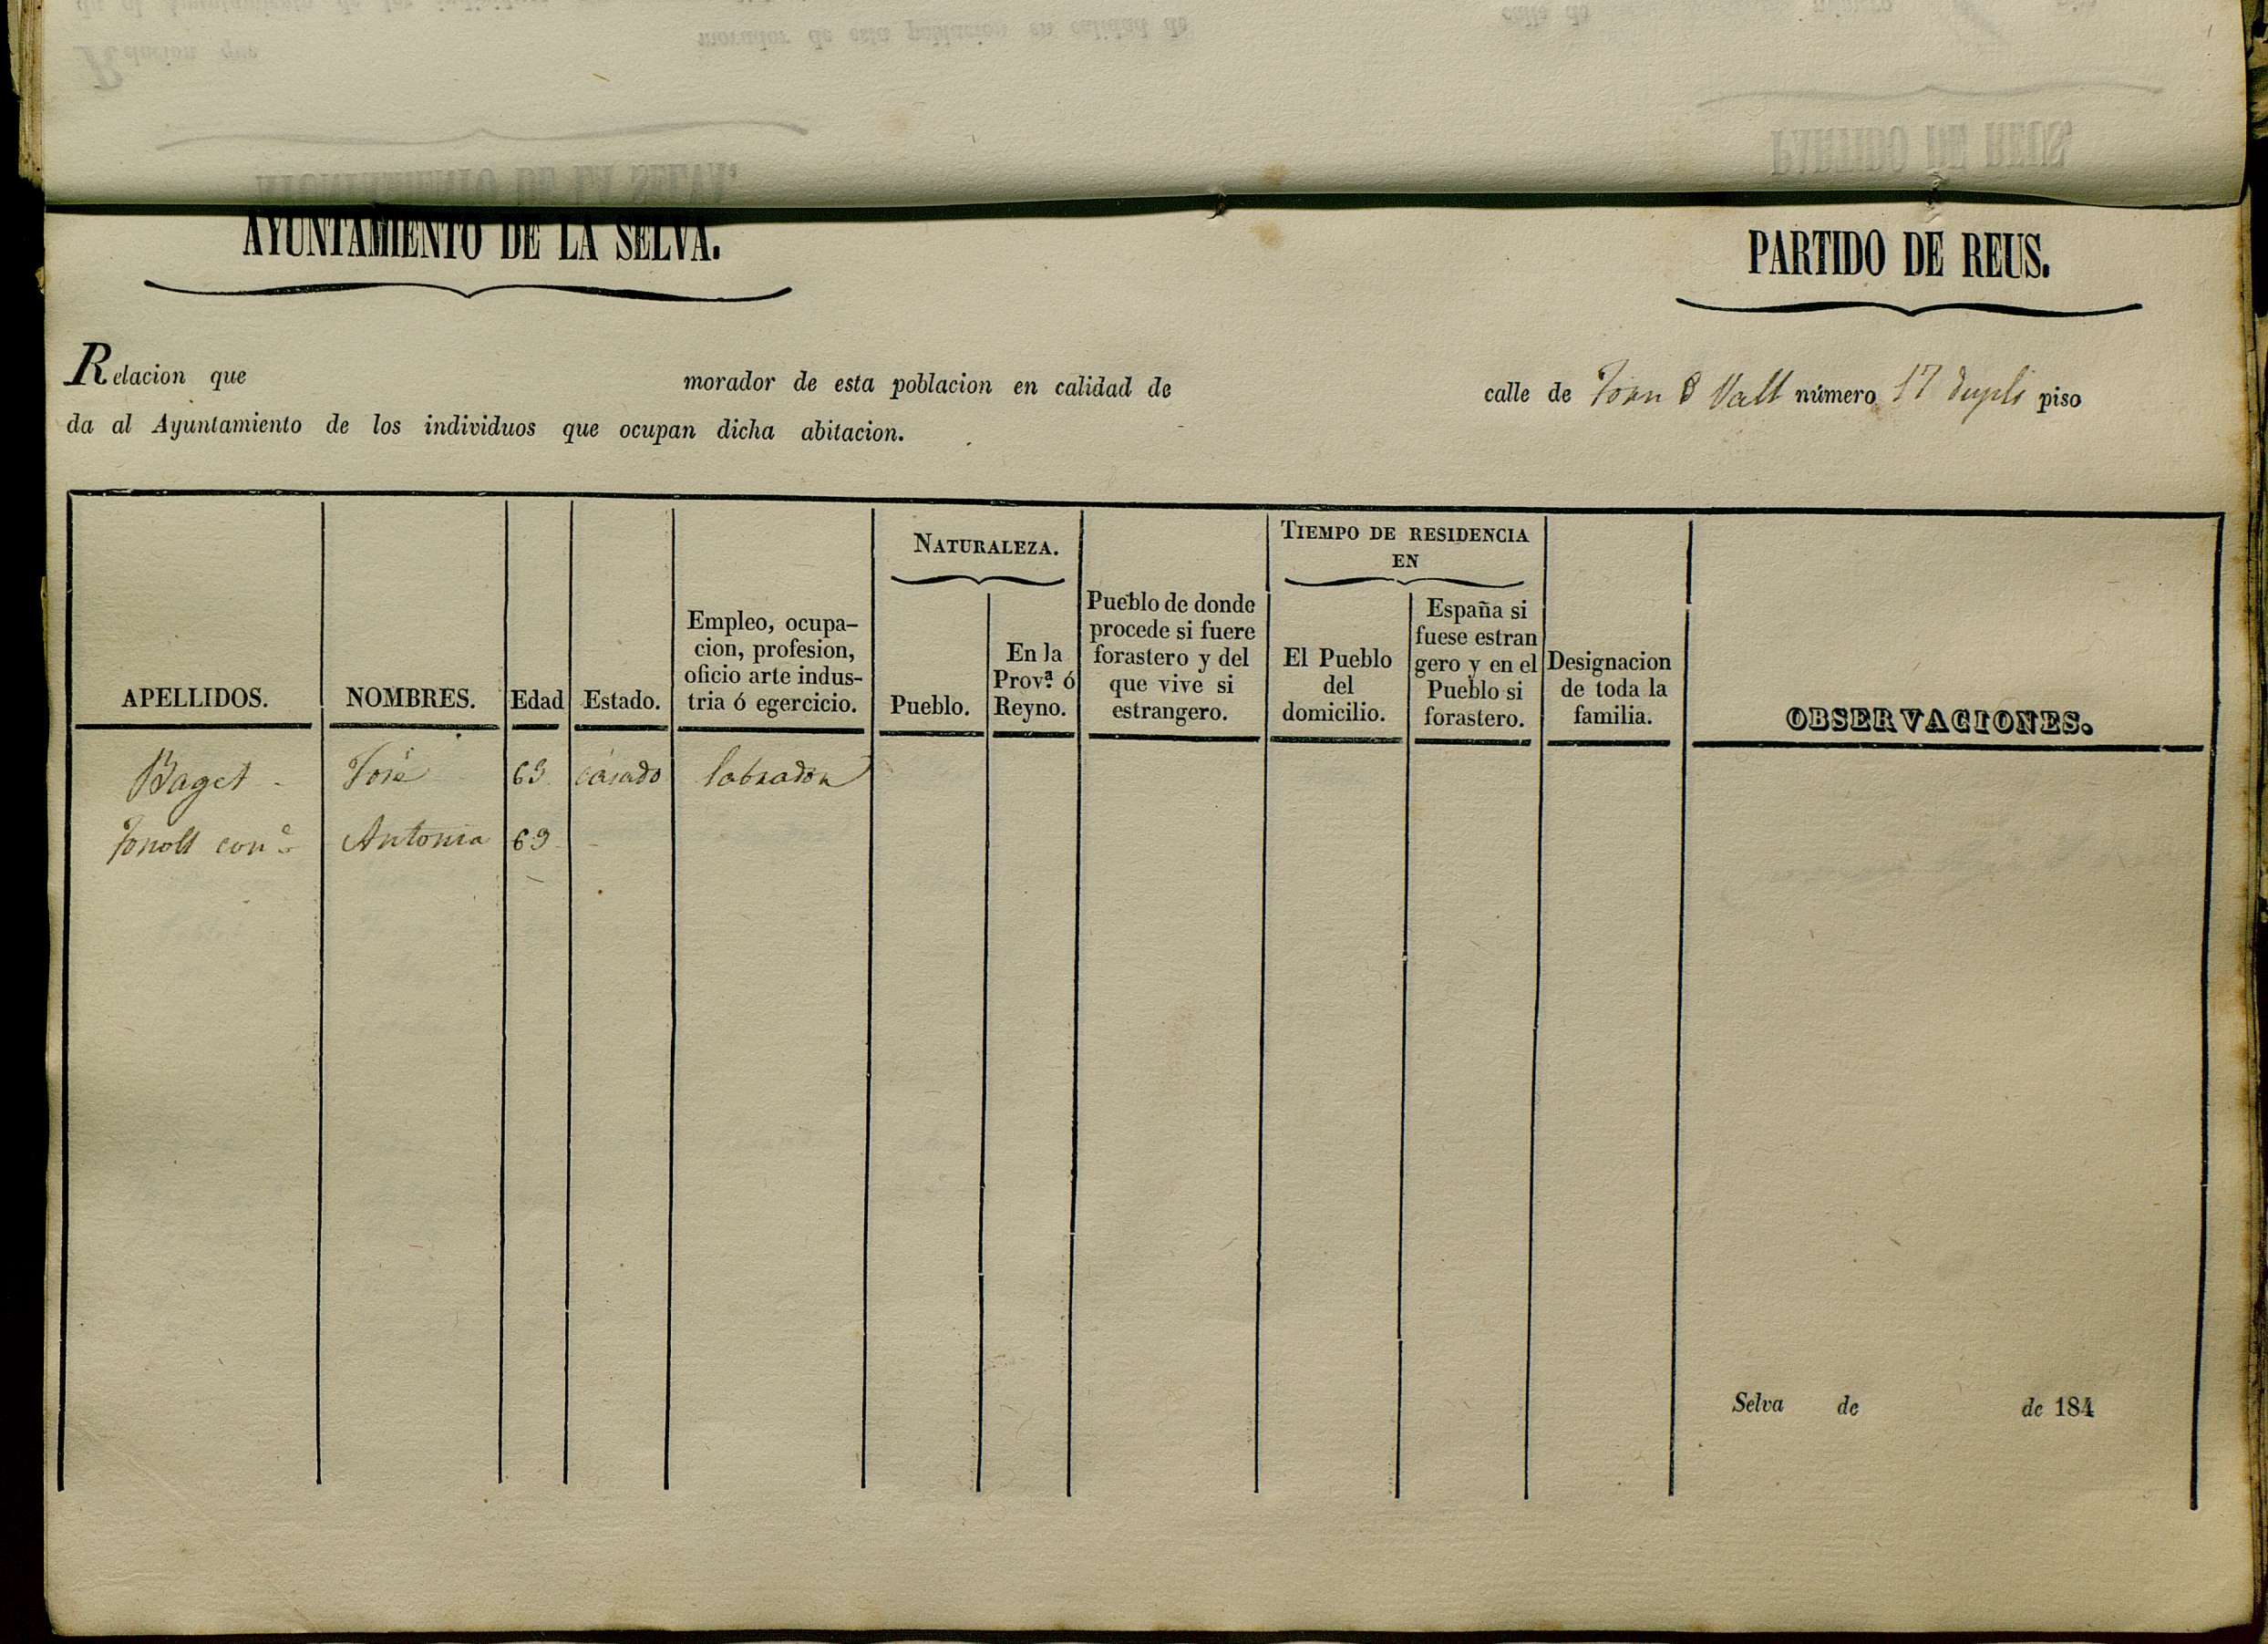 AYUNTAMIENTO DE LA SELVA.
PARTIDO DE REUS.
Relacion que morador de esta poblacion en calidad de calle de Vall número 17 dupli piso
da al Ayuntamiento de los individuos que ocupan dicha abitacion.
APELLIDOS.
NOMBRES.
Edad
Estado.
Empleo, ocupa-
cion, profesion,
oficio arte indus-
tria ó egercicio.
NATURALEZA.
Pueblo.
En la
Prov.ª ó
Reyno.
Pueblo de donde
procede si fuere
forastero y del
que vive si
estrangero.
TIEMPO DE RESIDENCIA
EN
El Pueblo
del
domicilio.
España si
fuese estran
gero y en el
Pueblo si
forastero.
Designacion
de toda la
familia.
OBSERVACIONES.
Baget José 63 casado labrador
Antonia 69
Selva de de 184